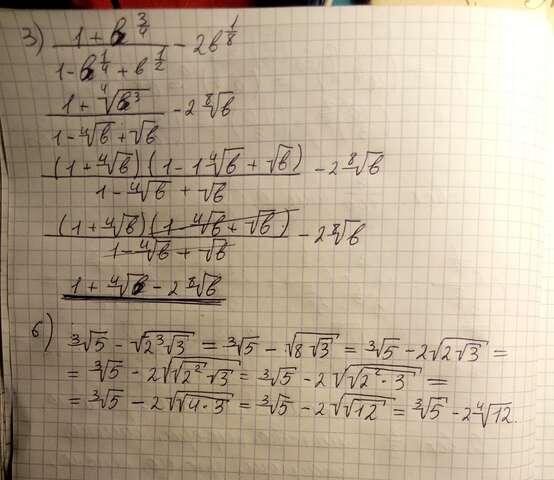 3) (1 + b^(3/4))/(1 - b^(1/4) + b^(1/2)) - 2b^(1/8)
(1 + ⁴√(b³))/(1 - ⁴√b + √b) - 2 ⁸√b
((1 + ⁴√b)(1 - 1⁴√b + √b))/(1 - ⁴√b + √b) - 2 ⁸√b
((1 + ⁴√b)(1 - ⁴√b + √b))/(1 - ⁴√b + √b) - 2 ⁸√b
1 + ⁴√b - 2 ⁸√b
6) ³√5 - √(2³√3) = ³√5 - √(8√3) = ³√5 - 2√(2√3) =
= ³√5 - 2√(√(2²)·√3) = ³√5 - 2√(√(2²·3)) =
= ³√5 - 2√(√(4·3)) = ³√5 - 2√(√12) = ³√5 - 2⁴√12.